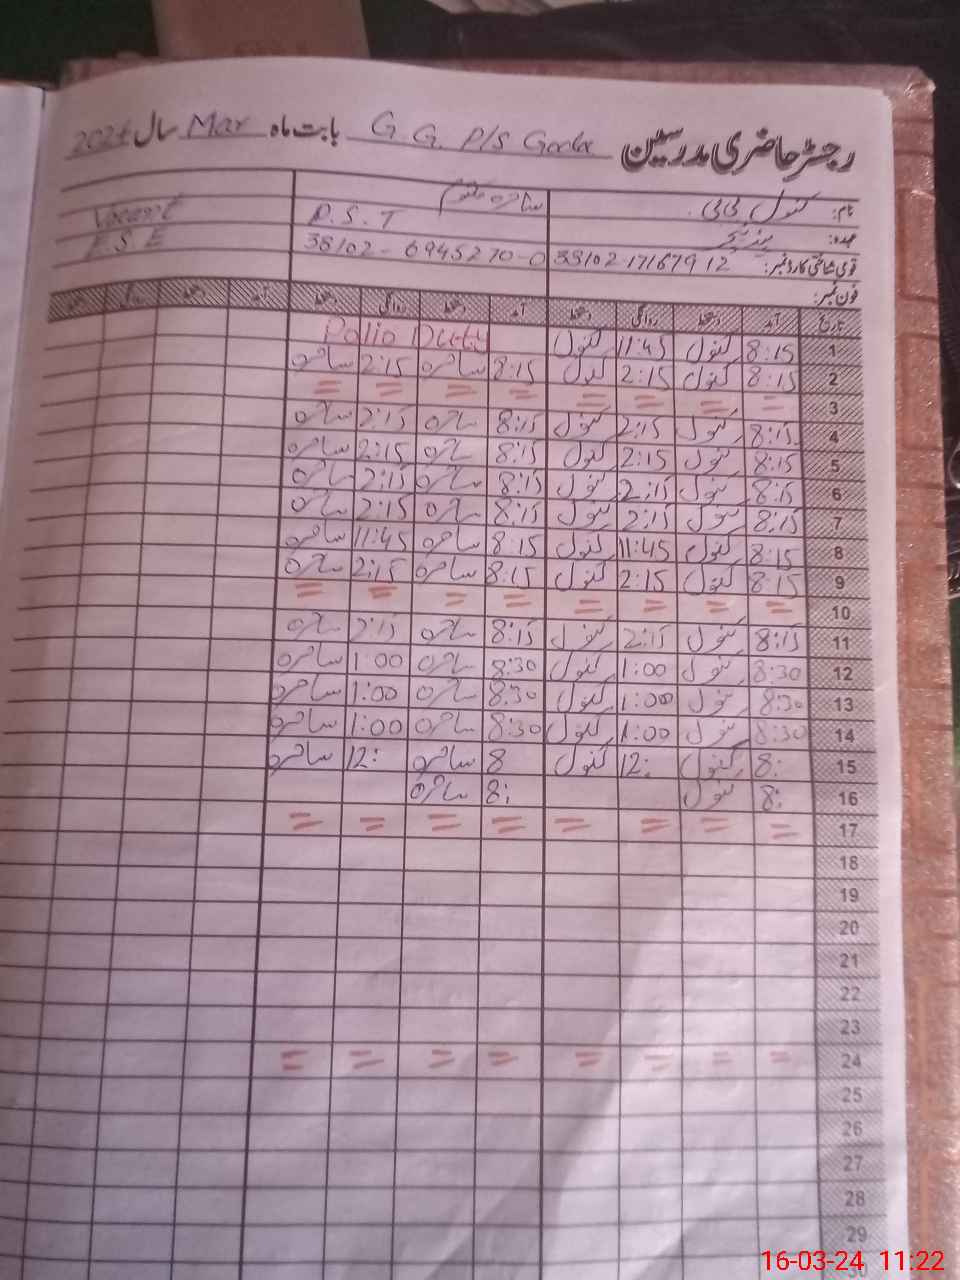 رجسٹر حاضری مدرسین G. G. P/S بابت ماہ Mar سال 2024
نام: کنول بی بی ساجرہ Vacant
عہدہ: P.S.T E.S.E
قومی شناختی کارڈ نمبر: 38102-6945270-0
فون نمبر:
تاریخ آمد دستخط روانگی دستخط آمد دستخط روانگی دستخط آمد دستخط روانگی دستخط
1 8:15 کنول 11:45 کنول Polio Duty
2 8:15 کنول 2:15 کنول 8:15 ساجرہ 2:15 ساجرہ
3 = = = = = = = =
4 8:15 کنول 2:15 کنول 8:15 ساجرہ 2:15 ساجرہ
5 8:15 کنول 2:15 کنول 8:15 ساجرہ 2:15 ساجرہ
6 8:15 کنول 2:15 کنول 8:15 ساجرہ 2:15 ساجرہ
7 8:15 کنول 2:15 کنول 8:15 ساجرہ 2:15 ساجرہ
8 8:15 کنول 11:45 کنول 8:15 ساجرہ 11:45 ساجرہ
9 8:15 کنول 2:15 کنول 8:15 ساجرہ 2:15 ساجرہ
10 = = = = = = = =
11 8:15 کنول 2:15 کنول 8:15 ساجرہ 2:15 ساجرہ
12 8:30 کنول 1:00 کنول 8:30 ساجرہ 1:00 ساجرہ
13 8:30 کنول 1:00 کنول 8:30 ساجرہ 1:00 ساجرہ
14 8:30 کنول 1:00 کنول 8:30 ساجرہ 1:00 ساجرہ
15 8: کنول 12: کنول 8 ساجرہ 12: ساجرہ
16 8: کنول 8: ساجرہ
17 = = = = = = = =
18
19
20
21
22
23
24 = = = = = = = =
25
26
27
28
29
30
16-03-24 11:22